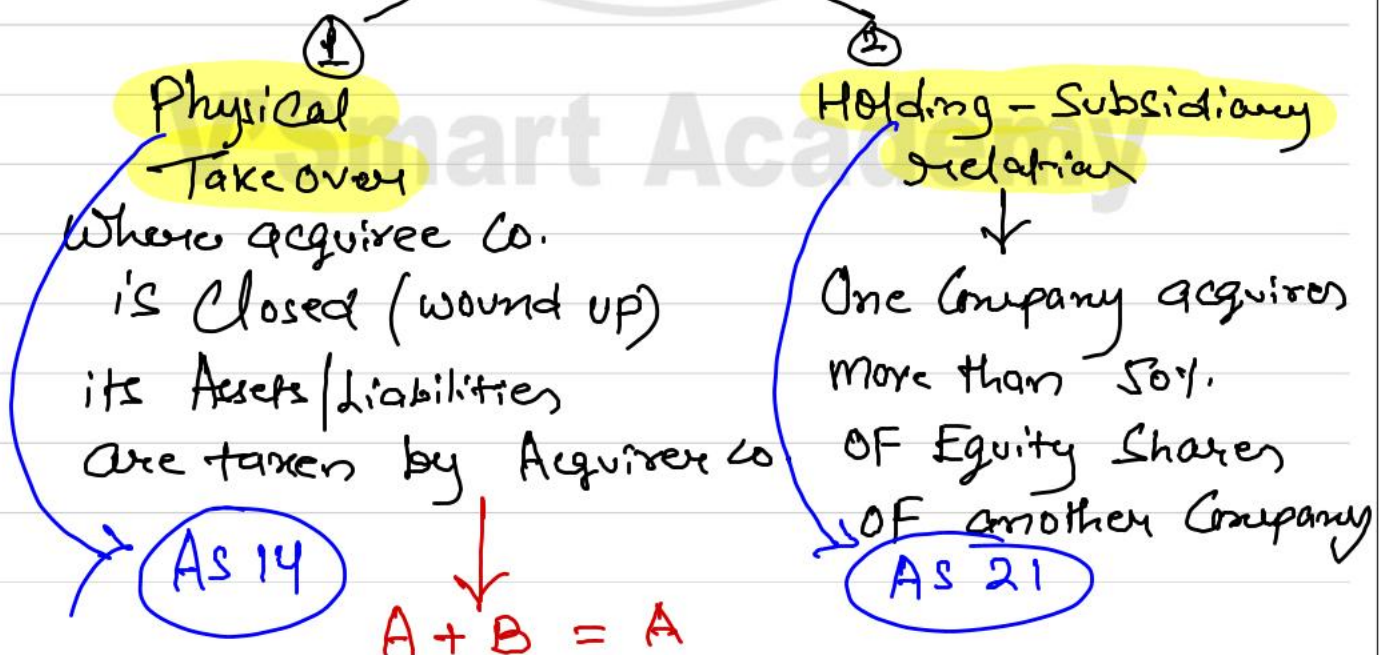 1
Physical
Takeover
Where acquiree Co.
is Closed (wound up)
its Assets/Liabilities
are taken by Acquirer co.
AS 14
A + B = A
2
Holding - Subsidiary
relation
One Company acquires
more than 50%.
OF Equity Shares
OF another Company
AS 21
Smart Academy